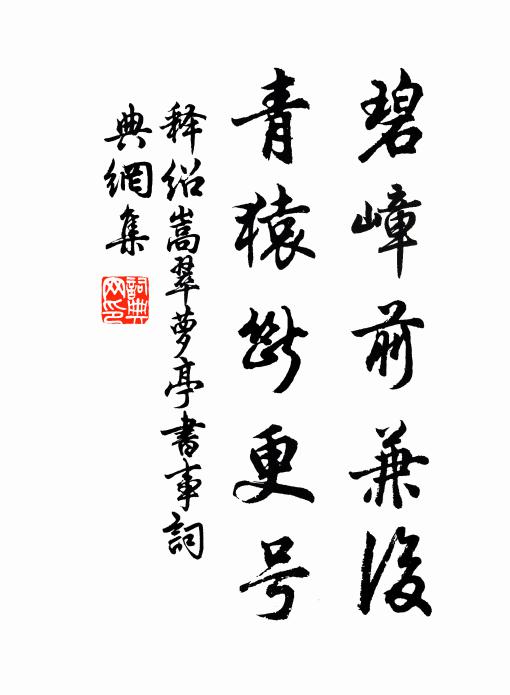 碧嶂前兼後
青猿斷更号
释绍嵩翠萝亭書事詞
典網集
詞典网印